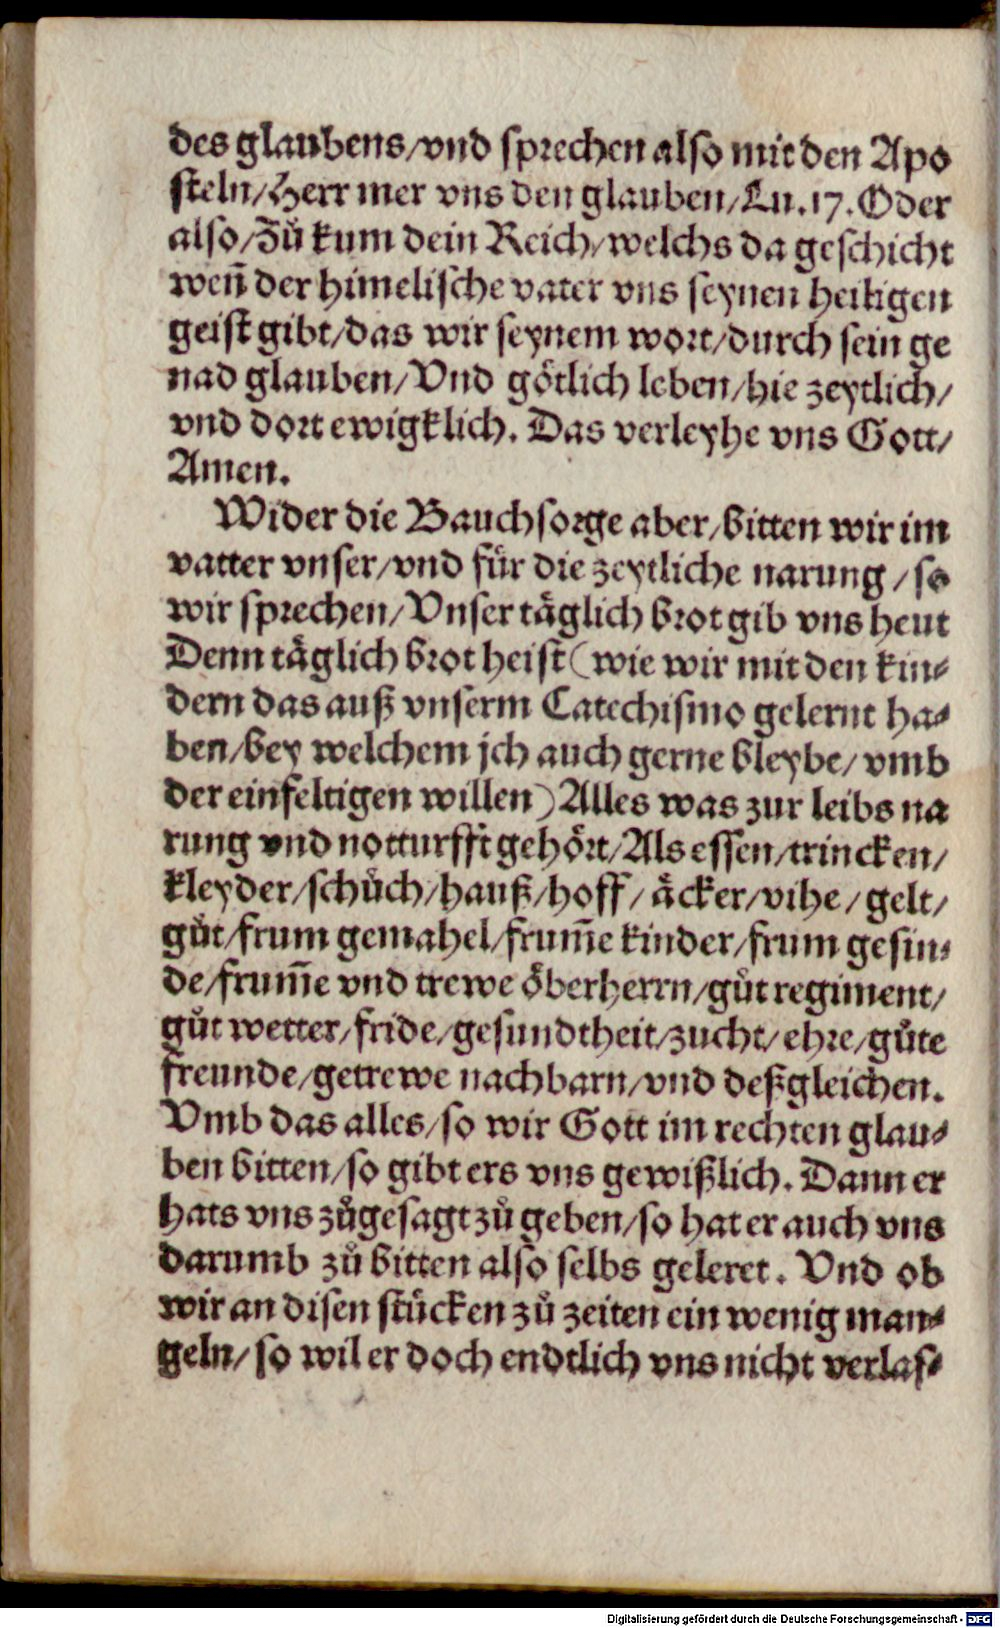 des glaubens/vnd sprechen also mit den Apo
steln/Herr mer vns den glauben/Lu.17.Oder
also/Zů kum dein Reich/welchs da geschicht
weñ der himelische vater vns seynen heiligen
geist gibt/das wir seynem wort/durch sein ge
nad glauben/Vnd götlich leben/hie zeytlich/
vnd dort ewigklich. Das verleyhe vns Gott/
Amen.
Wider die Bauchsorge aber/bitten wir im
vatter vnser/vnd für die zeytliche narung/so
wir sprechen/Vnser täglich brot gib vns heut
Denn täglich brot heist (wie wir mit den kin⸗
dern das auß vnserm Catechismo gelernt ha⸗
ben/bey welchem jch auch gerne bleybe/vmb
der einfeltigen willen) Alles was zur leibs na
rung vnd notturfft gehört/Als essen/trincken/
kleyder/schůch/hauß/hoff/äcker/vihe/gelt/
gůt/frum gemahel/frum̄e kinder/frum gesin⸗
de/frum̄e vnd trewe öberherrn/gůt regiment/
gůt wetter/fride/gesundtheit/zucht/ehre/gůte
freunde/getrewe nachbarn/vnd deßgleichen.
Vmb das alles/so wir Gott im rechten glau⸗
ben bitten/so gibt ers vns gewißlich. Dann er
hats vns zůgesagt zů geben/so hat er auch vns
darumb zů bitten also selbs geleret. Vnd ob
wir an disen stücken zů zeiten ein wenig man⸗
geln/so wil er doch endtlich vns nicht verlas⸗
Digitalisierung gefördert durch die Deutsche Forschungsgemeinschaft - DFG